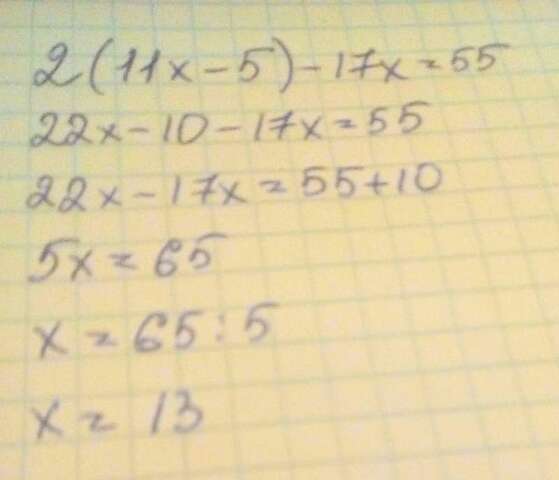 2(11x-5)-17x=55
22x-10-17x=55
22x-17x=55+10
5x=65
x=65:5
x=13